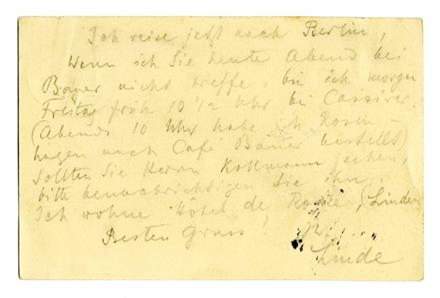 Ich reise jetzt nach Berlin,
Wenn ich Sie heute Abend bei
Bauer nicht treffe, bin ich morgen
Freitag früh 10 1/2 Uhr bei Cassirer.
(Abends 10 Uhr habe ich Rosen-
hagen nach Café Bauer bestellt)
Sollten Sie Herrn Kollmann sehen,
bitte benachrichtigen Sie ihn.
Ich wohne Hôtel de Rome, (Linden
Besten Gruss!
Linde